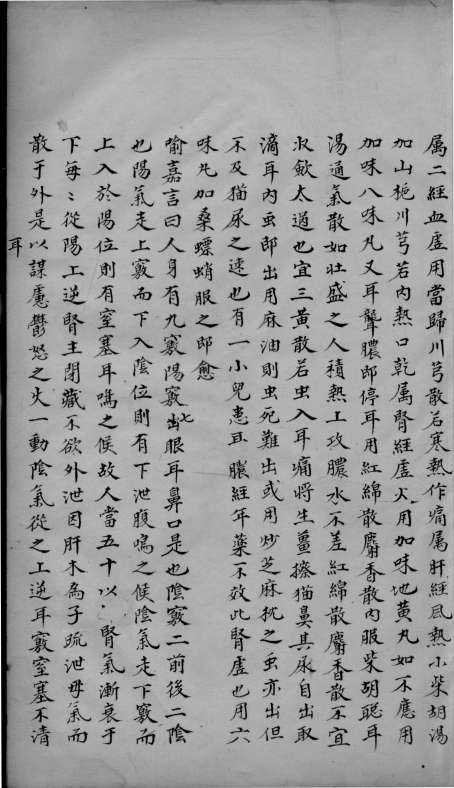 属二經血虛用當歸川芎散若寒熱作痛属肝經風熱小柴胡湯
加山梔川芎若內熱口乾属腎經虛火用加味地黃丸如不應用
加味八味丸又耳聾膿即停耳用紅綿散麝香散內服柴胡聡耳
湯通氣散如壮盛之人積熱上攻膿水不差紅綿散麝香散不宜
收斂太過也宜三黃散若虫入耳痛將生薑擦猫鼻其尿自出取
滴耳內虫即出用麻油則虫死難出或用炒芝麻枕之虫亦出但
不及猫尿之速也有一小兒患耳膿經年藥不效此腎虛也用六
味丸加桑螵蛸服之即愈
喻嘉言曰人身有九竅陽竅七出眼耳鼻口是也陰竅二前後二陰
也陽氣走上竅而下入陰位則有下泄腹鳴之候陰氣走下竅而
上入於陽位則有窒塞耳鳴之候故人當五十以腎氣漸衰于
下每〻從陽上逆腎主閉藏不欲外泄因肝木為子疏泄母氣而
散于外是以謀慮鬱怒之火一動陰氣從之上逆耳竅窒塞不清
耳